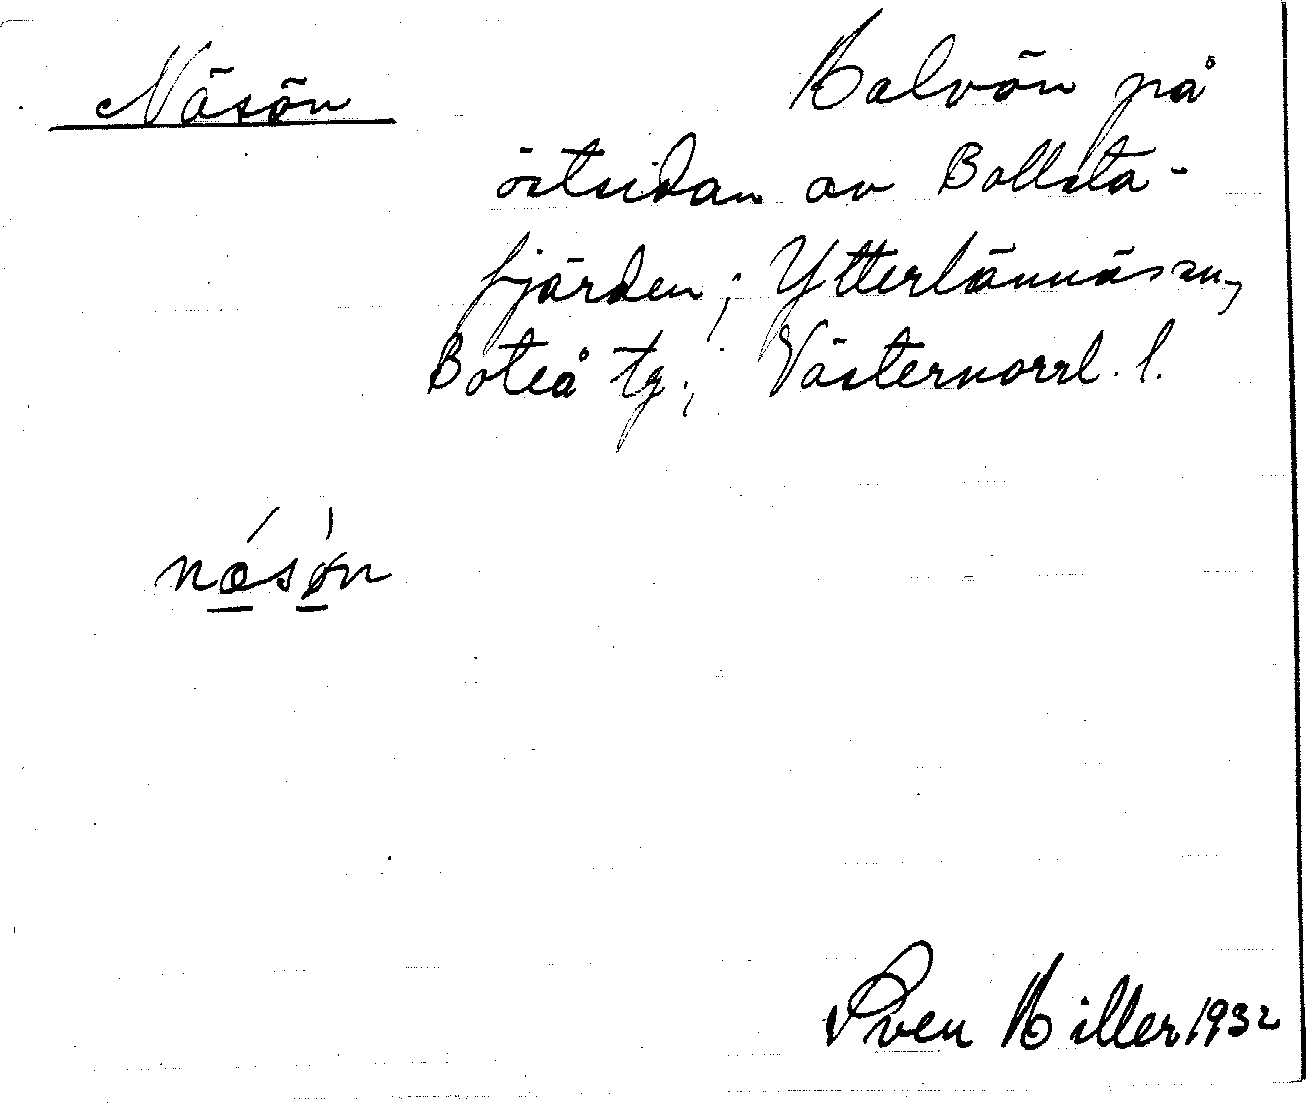 Näsön
Halvön på
östsidan av Bollsta-
fjärden; Ytterlännäs sn,
Boteå tg; Västernorrl. l.
næ´sø`n
Sven Hiller 1932